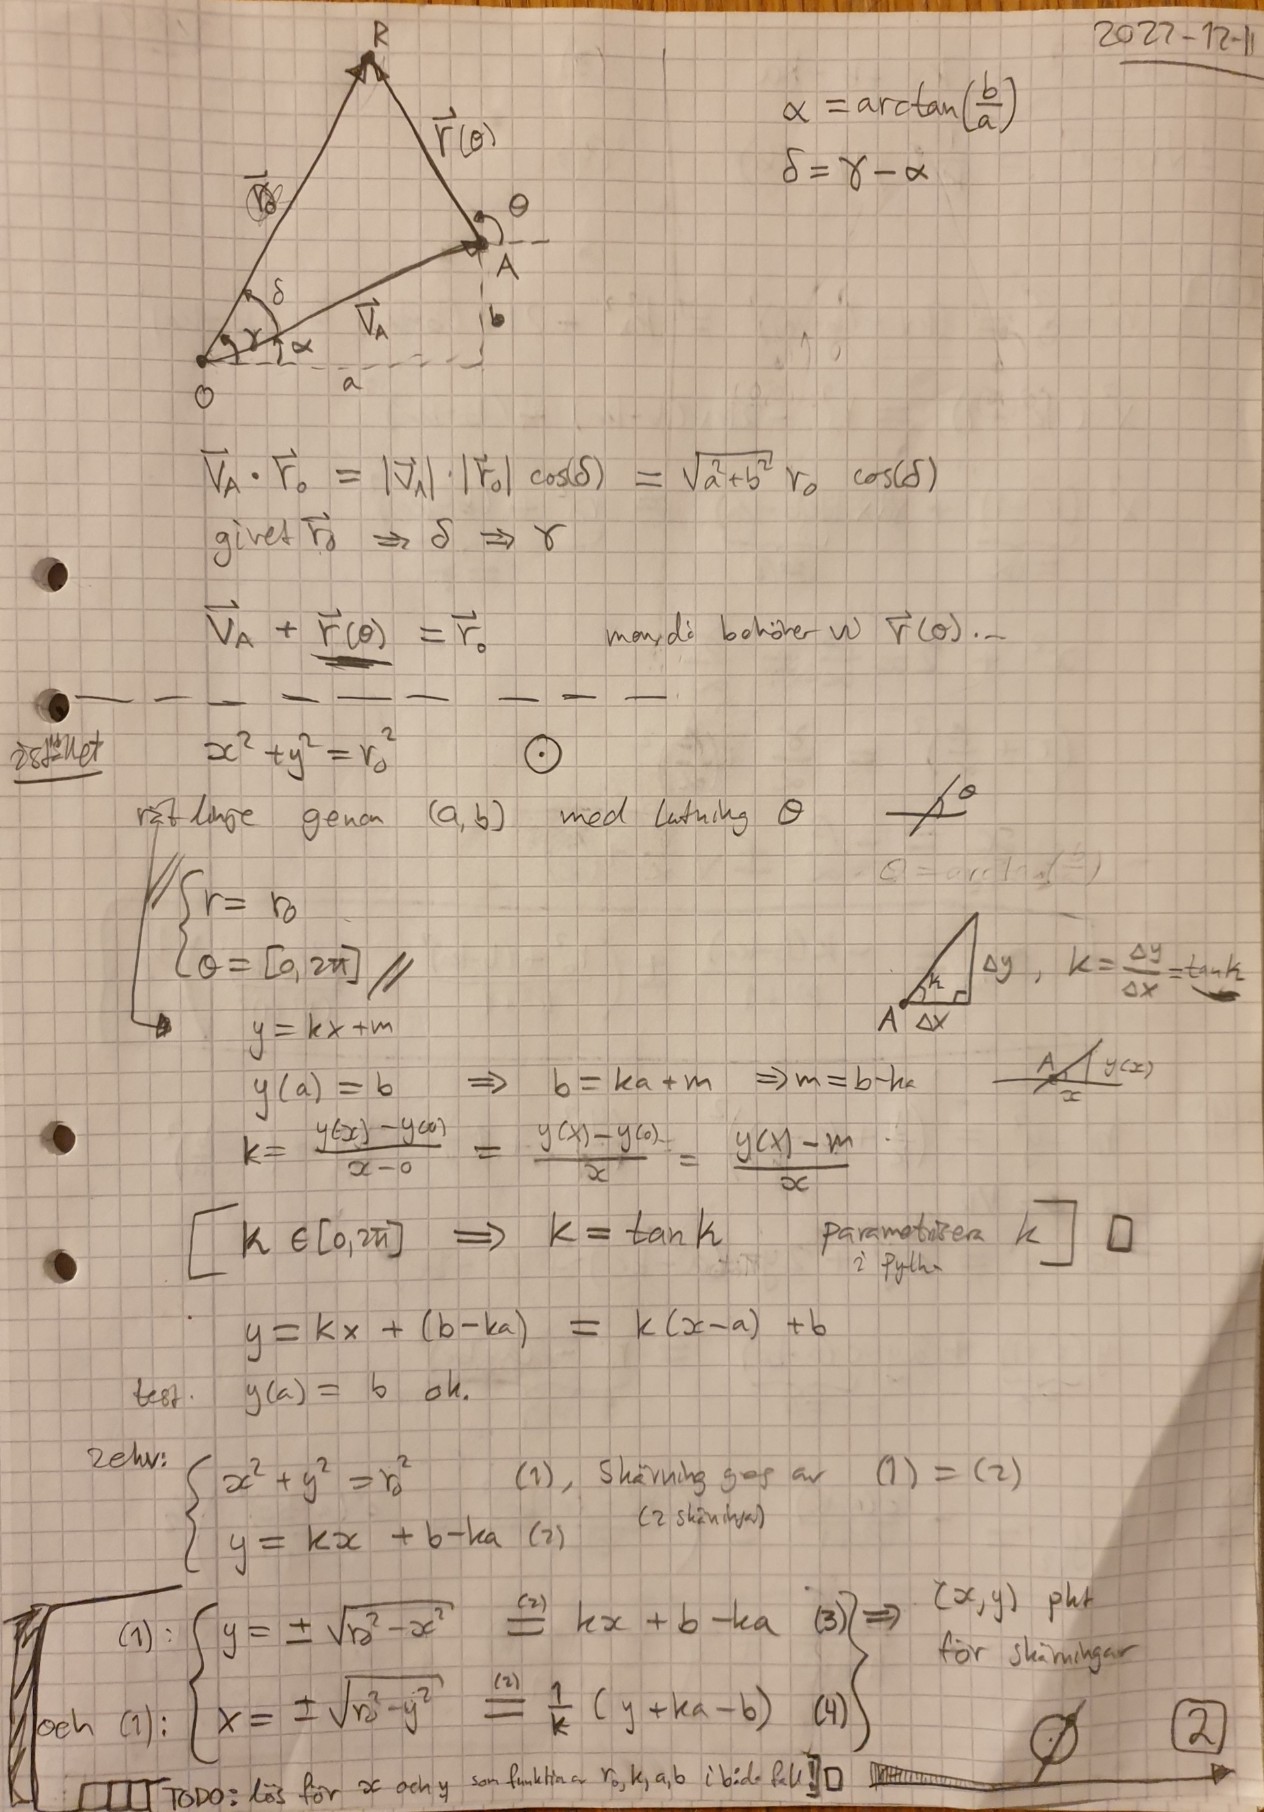 2022-12-11
R
α = arctan(b/a)
δ = γ - α
r⃗(θ)
r⃗₀
θ
A
δ
γ
α
V⃗_A
b
a
O
V⃗_A · r⃗₀ = |V⃗_A| · |r⃗₀| cos(δ) = √(a²+b²) r₀ cos(δ)
givet r⃗₀ ⇒ δ ⇒ γ
V⃗_A + r⃗(θ) = r⃗₀ men, då behöver vi r⃗(θ)...
istället x² + y² = r₀²
rät linje genom (a,b) med lutning θ
θ
θ = arctan(
{ r = r₀
{ θ = [0, 2π] //
Δy, k = Δy/Δx = tan k
k
A Δx
y = kx + m
y(a) = b ⇒ b = ka + m ⇒ m = b-ka
A y(x)
x
k = (y(x) - y(0))/(x-0) = (y(x) - y(0))/x = (y(x) - m)/x
[ k ∈ [0, 2π] ⇒ k = tan k parametrisera k ] □
i Pyth.
y = kx + (b-ka) = k(x-a) + b
test. y(a) = b ok.
2 ekv: { x² + y² = r₀² (1), Skärning ges av (1) = (2)
(2 skärningar)
{ y = kx + b-ka (2)
(1): { y = ± √(r₀² - x²) =(2) kx + b - ka (3) } ⇒ (x,y) pkt
för skärningar
och (1): { x = ± √(r₀² - y²) =(2) 1/k (y + ka - b) (4) }
2
TODO: lös för x och y som funktion av r₀, k, a, b i båda fall! □